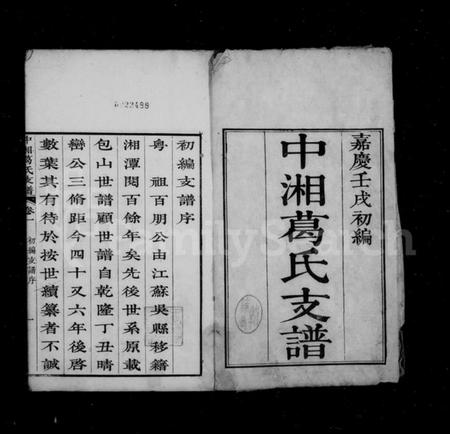 嘉慶壬戌初編
中湘葛氏支譜
初編支譜序
粵　祖百朋公由江蘇吳縣移籍
湘潭閱百餘年矣先後世系原載
包山世譜顧世譜自乾隆丁丑晴
巒公三脩距今四十又六年後啓
數葉其有待於按世續纂者不誠
中湘葛氏支譜 卷一 初編支譜序
6022488
FamilySearch